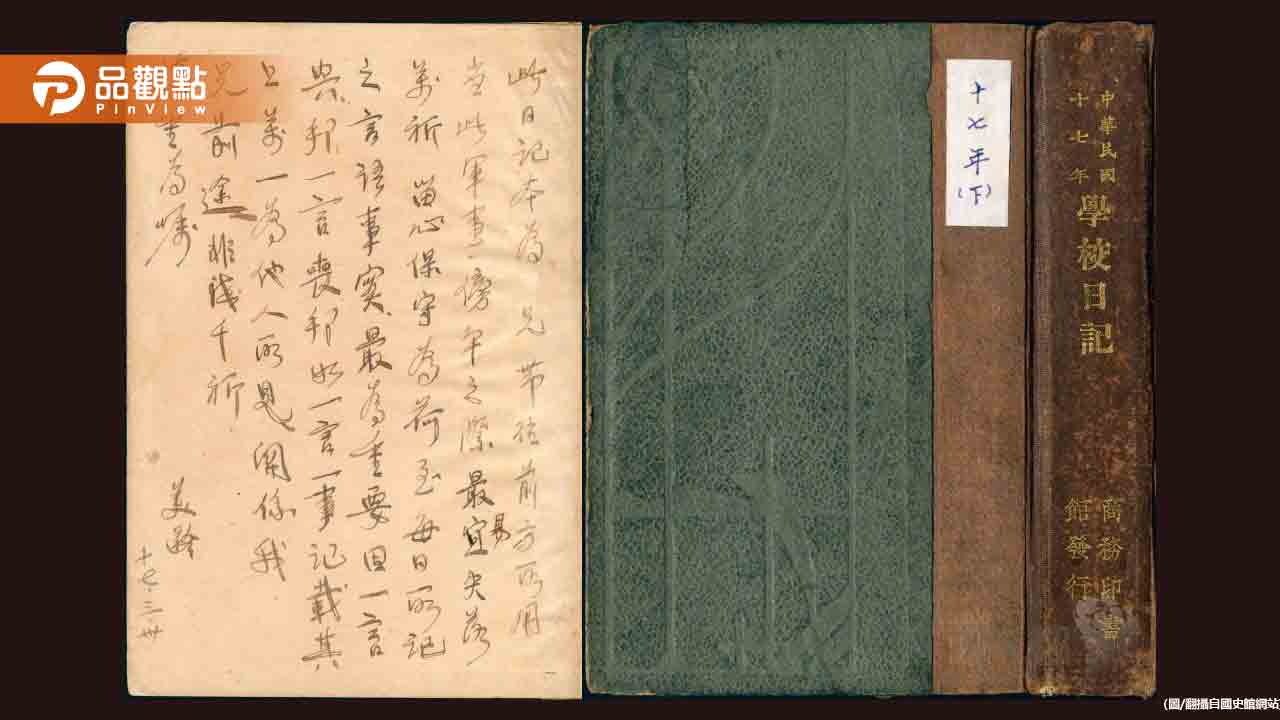 品觀點
PinView
此日記本為 兄帶往前方所用
當此軍事傍午之際最宜失落
易
萬祈 留心保守為荷至每日所記
之言語事實最為重要因一言
興邦一言喪邦如一言一事記載其
上萬一為他人所見關係我
兄前途非淺千祈
重為囑
美齡
十七、三、卅
十七年(下)
中華民國
十七年
學校日記
商務印書
館發行
(圖/翻攝自國史館網站